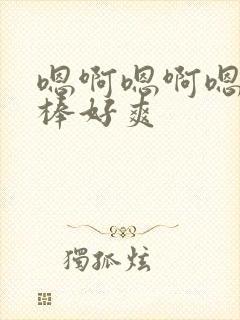 嗯啊嗯啊嗯
棒好爽
獨孤炫